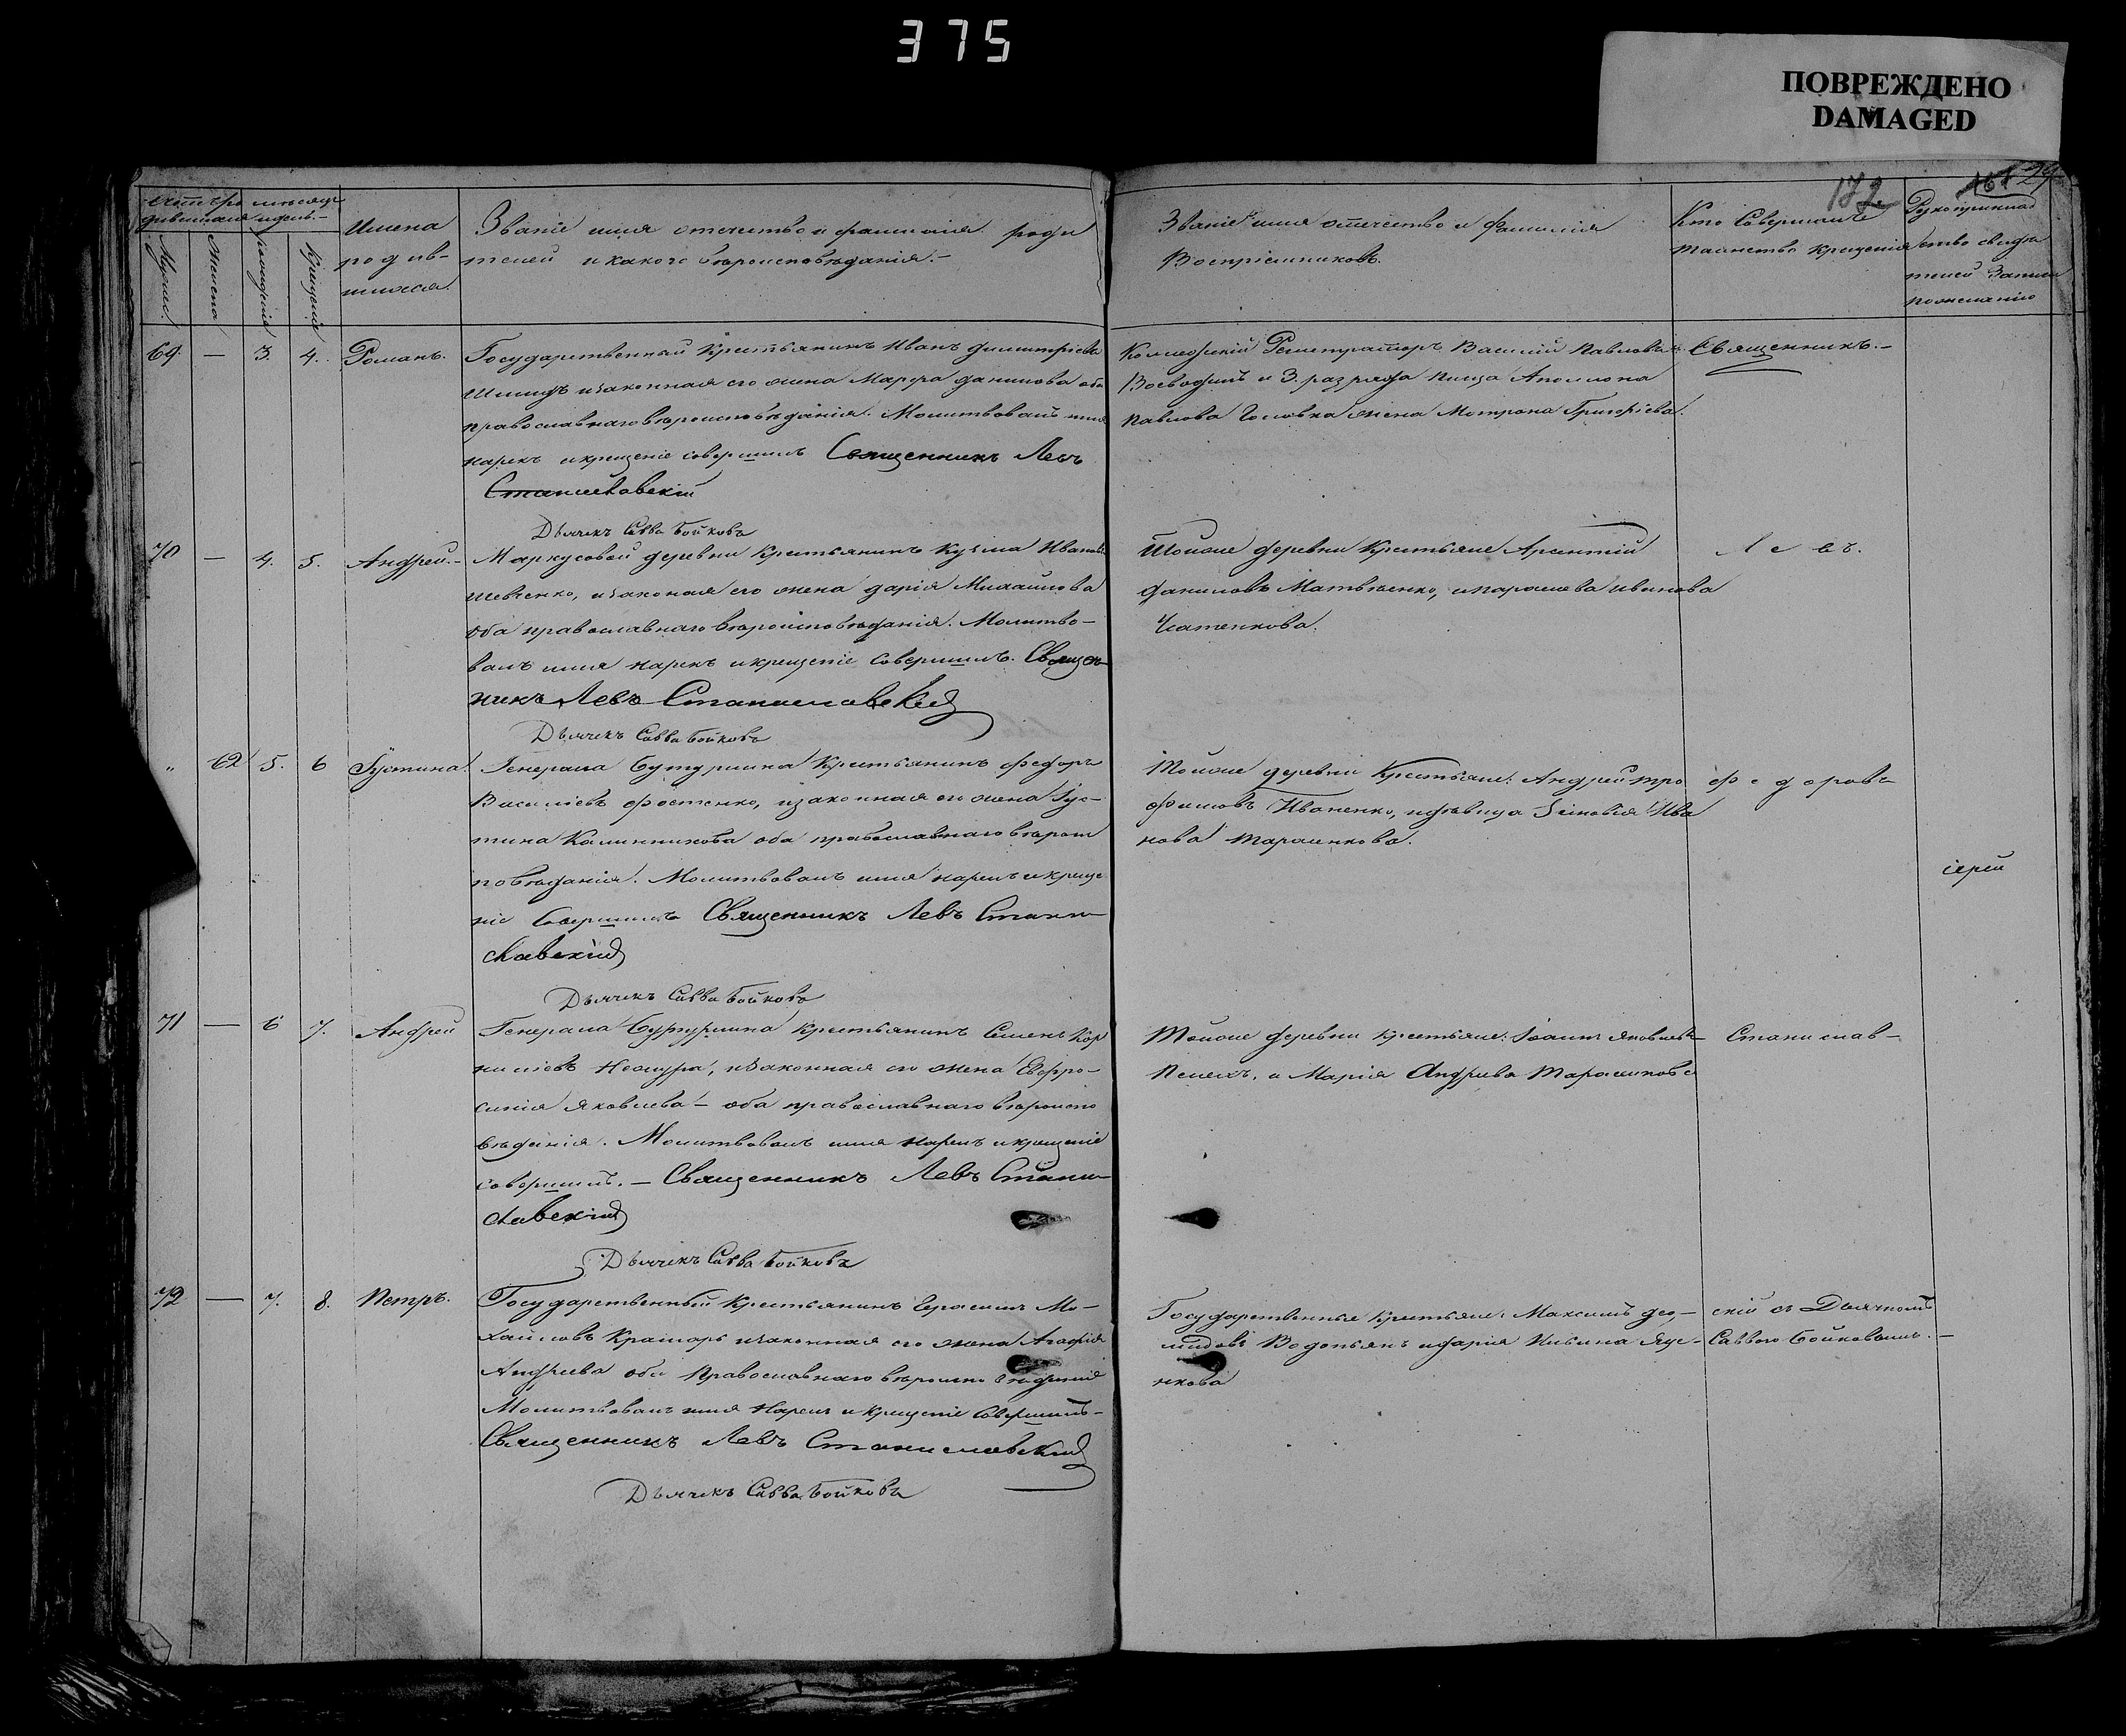 375
ПОВРЕЖДЕНО
DAMAGED
172
Имена
родив-
шихся.
Званіе имя отечество и фамилія роди
телей и какого вѣроисповѣданія.-
Мужеска
Женска
рожденія
Крещенія
Званіе имя отечество и фамилія
Воспріемниковъ.
Кто Совершалъ
таинство Крещенія
Рукоприклад
ство свидѣ
телей Записи
по желанію
69. — 3. 4. Романъ.
Государственный Крестьянинъ Иванъ Димитріевъ
изаконная его жена Марфа Данилова оба
православнаго вѣроисповѣданія. Молитвовалъ имя
нарекъ икрещеніе совершилъ Священникъ Левъ
Станиславскій
Дьячекъ Савва Бойковъ
Коллежскій Регистраторъ Василій Павловъ
Воеводинъ и 3. разряда писца Аполлона
Павлова Головка жена Мотрона Григоріева.
Священникъ.-
70 — 4. 5. Андрей.-
Маркусовой деревни Крестьянинъ Кузма Ивановъ
Шевченко, изаконая его жена дарія Михайлова
Оба православнаго вѣроисповѣданія. Молитво-
валъ имя нарекъ икрещеніе Совершилъ. Священ-
никъ Левъ Станиславскій
Дьячекъ Савва Бойковъ
Тойже деревни Крестьяне Арсентій
Даниловъ Матвѣенко, ипараскева иванова
Левъ.
„ 62 5. 6 Іустина.
Генерала Бутурлина Крестьянинъ Федоръ
Василіевъ Фостенко, изаконная его жена Іус-
тина Калинникова оба православнаго вѣроис
повѣданія. Молитвовалъ имя нарекъ икреще
ніе Совершилъ Священникъ Левъ Стани-
славскій
Дьячекъ Савва Бойковъ
Тойже деревни Крестьяне: Андрей тро
фимовъ Иваненко, идѣвица Зиновія Ива
нова Тарасенкова.
Федоровъ
іерей
71 — 6 7. Андрей
Генерала Бутурлина крестьянинъ Семенъ Кор
ниліевъ изаконная его жена Евфро-
синія Яковлева — оба православнаго вѣроиспо
вѣданія. Молитвовалъ имя нарекъ икрещеніе
совершилъ. — Священникъ Левъ Стани-
славскій
Дьячекъ Савва Бойковъ
Тойже деревни крестьяне: Іоаннъ Яковлевъ
и Марія Андрѣева Тарасенкова
Станислав-
72 — 7. 8. Петръ.
Государственный Крестьянинъ Герасимъ Ми-
хайловъ Крамарь изаконная его жена Агафія
Андрѣева оба Православнаго вѣроисповѣданія
Молитвовалъ имя Нарекъ и Крещеніе Совершилъ-
Священникъ Левъ Станиславскій
Дьячекъ Савва Бойковъ
Государственные Крестьяне: Максимъ Део-
мидовъ Водопьянъ идарія
нкова
скій съ Дьячкомъ
Саввою Бойковымъ.-